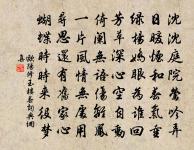 沈沈庭院鶯吟弄
日暖煙和春氣重
綠楊嬌眼為誰回
芳草深心空自動
倚闌無語傷離鳳
一片風情無處用
尋思還有舊家心
蝴蝶時時來役夢
歐陽修玉樓春詞典網
集